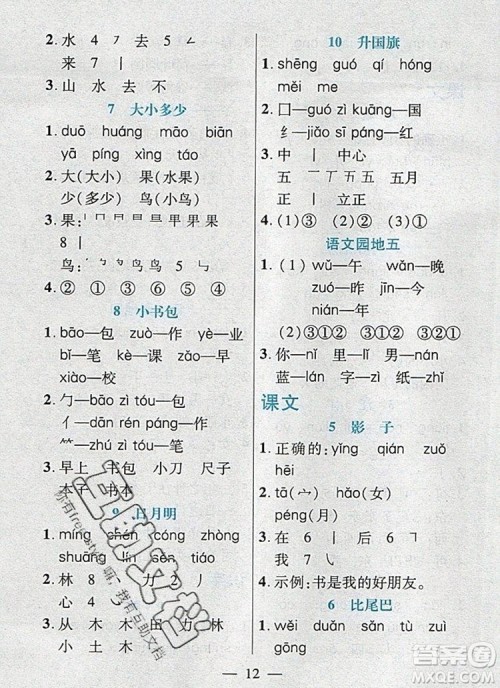 2. 水 4 ㇕ 去 5 ㇜
来 7 丨
3. 山 水 去 不
7 大小多少
1. duō huáng māo biān
yā píng xìng táo
2. 大(大小) 果(水果)
少(多少) 鸟(小鸟)
3. 果:
8 丨
鸟: 5
4. ② ① ⑥ ⑤ ④ ③
8 小书包
1. bāo—包 zuò—作 yè—业
bǐ—笔 kè—课 zǎo—早
xiào—校
2. 勹—bāo zì tóu—包
亻—dān rén páng—作
⺮—zhú zì tóu—笔
3. 早上 书包 小刀 尺子
本子 书本
9 日月明
1. míng chén cóng zhòng
shuāng lín sēn tiáo
2. 林 8 力 2 丿
心 4
3. 从 木 木 日 月
小 土 木 田 力
10 升国旗
1. shēng guó qí hóng
měi me
2. 囗—guó zì kuāng—国
纟—jiǎo sī páng—红
3. 中 丨 中心
五 五月
正 丨 立正
4. (1)③ (2)④ (3)②①
语文园地五
1. (1)wǔ—午 wǎn—晚
zuó—昨 jīn—今
nián—年
(2)③①② ③①②
3. 你—n 里—l 男—n
蓝—l 字—z 纸—zh
课文
5 影子
1. 正确的:yǐng qián zuǒ
hēi
2. tā(也) hǎo(女)
péng(月)
3. 在 6 丨 后 6
我 7 ㇂
4. 示例:书是我的好朋友。
6 比尾巴
1. wěi duǎn sǎn tù zuì
gōng
12
答案圈
MXQE.COM